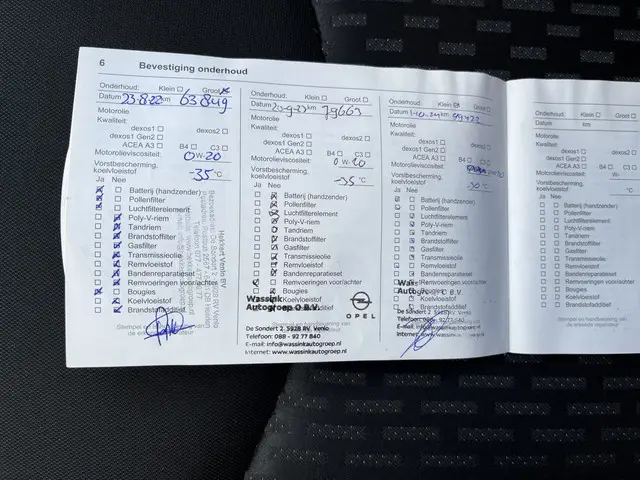 6
Bevestiging onderhoud
Onderhoud: Klein Groot
Datum 23-8-22 km 63849
Motorolie
Kwaliteit:
dexos1 dexos2
dexos1 Gen2
ACEA A3 B4 C3
Motorolieviscositeit: 0W-20
Vorstbescherming,
koelvloeistof -35 °C
Ja Nee
Batterij (handzender)
Pollenfilter
Luchtfilterelement
Poly-V-riem
Tandriem
Brandstoffilter
Gasfilter
Transmissieolie
Remvloeistof
Bandenreparatieset
Remvoeringen voor/achter
Bougies
Koelvloeistof
Brandstofadditief
Stempel en
de erkende reparateur
Hekkert Venlo BV
Onderhoud: Klein Groot
Datum km 79663
Motorolie
Kwaliteit:
dexos1 dexos2
dexos1 Gen2
ACEA A3 B4 C3
Motorolieviscositeit:
Vorstbescherming,
koelvloeistof -35 °C
Ja Nee
Batterij (handzender)
Pollenfilter
Luchtfilterelement
Poly-V-riem
Tandriem
Brandstoffilter
Gasfilter
Transmissieolie
Remvloeistof
Bandenreparatieset
Remvoeringen voor/achter
Bougies
Wassink
Autogroep O B.V.
OPEL
De Sondert 2, 5928 RV, Venlo
Telefoon: 088 - 92 77 840
E-mail: info@wassinkautogroep.nl
Internet: www.wassinkautogroep.nl
Onderhoud: Klein Groot
Datum km
Motorolie
Kwaliteit:
dexos1 dexos2
dexos1 Gen2
ACEA A3 B4 C3
Motorolieviscositeit:
Vorstbescherming,
koelvloeistof -30 °C
Ja Nee
Batterij (handzender)
Pollenfilter
Luchtfilterelement
Poly-V-riem
Tandriem
Brandstoffilter
Gasfilter
Transmissieolie
Remvloeistof
Bandenreparatieset
Remvoeringen voor/achter
Bougies
Koelvloeistof
Brandstofadditief
De Sondert 2, 5928 RV, Venlo
Telefoon: 088 - 92 77 840
E-mail: info@wassinkautogroep.nl
Internet: www.wassinkautogroep.nl
Onderhoud: Klein Groot
Datum km
Motorolie
Kwaliteit:
dexos1 dexos2
dexos1 Gen2
ACEA A3 B4 C3
Motorolieviscositeit: W-
Vorstbescherming,
koelvloeistof °C
Ja Nee
Batterij (handzender)
Pollenfilter
Luchtfilterelement
Poly-V-riem
Tandriem
Brandstoffilter
Gasfilter
Transmissieolie
Remvloeistof
Bandenreparatieset
Remvoeringen voor/achter
Bougies
Koelvloeistof
Brandstofadditief
Stempel en handtekening van
de erkende reparateur